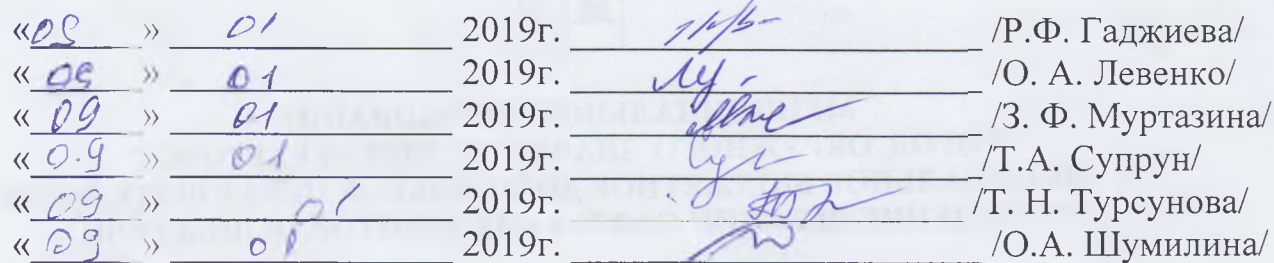 «09» 01 2019г. /Р.Ф. Гаджиева/
«09» 01 2019г. /О. А. Левенко/
«09» 01 2019г. /З. Ф. Муртазина/
«0.9» 01 2019г. /Т.А. Супрун/
«09» 01 2019г. /Т. Н. Турсунова/
«09» 01 2019г. /О.А. Шумилина/